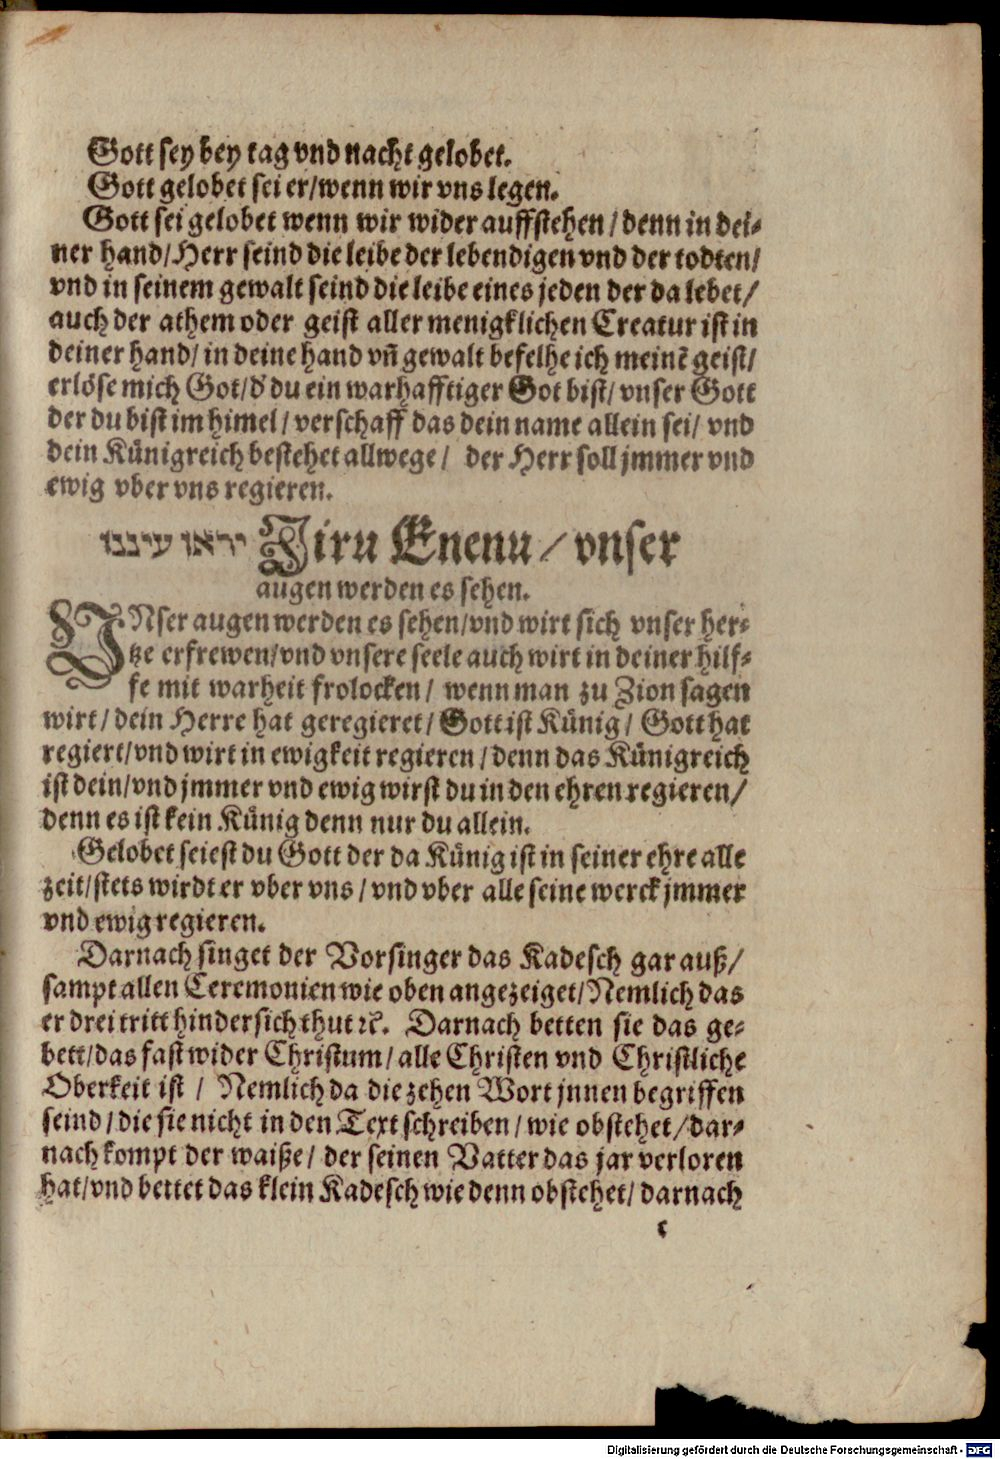 Gott sey bey tag vnd nacht gelobet.
Gott gelobet sei er/wenn wir vns legen.
Gott sei gelobet wenn wir wider auffstehen/denn in dei-
ner hand/Herr seind die leibe der lebendigen vnd der todten/
vnd in seinem gewalt seind die leibe eines jeden der da lebet/
auch der athem oder geist aller menigklichen Creatur ist in
deiner hand/in deine hand vñ gewalt befelhe ich meinẽ geist/
erlöse mich Got/d' du ein warhafftiger Got bist/vnser Gott
der du bist im himel/verschaff das dein name allein sei/vnd
dein Künigreich bestehet allwege/ der Herr soll jmmer vnd
ewig vber vns regieren.
יראו עיננו Jiru Enenu/vnser
augen werden es sehen.
VNser augen werden es sehen/vnd wirt sich vnser her-
tze erfrewen/vnd vnsere seele auch wirt in deiner hilf-
fe mit warheit frolocken/ wenn man zu Zion sagen
wirt/dein Herre hat geregieret/Gott ist Künig/ Gott hat
regiert/vnd wirt in ewigkeit regieren/denn das Künigreich
ist dein/vnd jmmer vnd ewig wirst du in den ehren regieren/
denn es ist kein Künig denn nur du allein.
Gelobet seiest du Gott der da Künig ist in seiner ehre alle
zeit/stets wirdt er vber vns/vnd vber alle seine werck jmmer
vnd ewig regieren.
Darnach singet der Vorsinger das Kadesch gar auß/
sampt allen Ceremonien wie oben angezeiget/Nemlich das
er drei tritt hindersich thut ꝛc. Darnach betten sie das ge-
bett/das fast wider Christum/alle Christen vnd Christliche
Oberkeit ist/ Nemlich da die zehen Wort jnnen begriffen
seind/die sie nicht in den Text schreiben/wie obstehet/dar-
nach kompt der waiße/der seinen Vatter das jar verloren
hat/vnd bettet das klein Kadesch wie denn obstehet/darnach
c
Digitalisierung gefördert durch die Deutsche Forschungsgemeinschaft - DFG